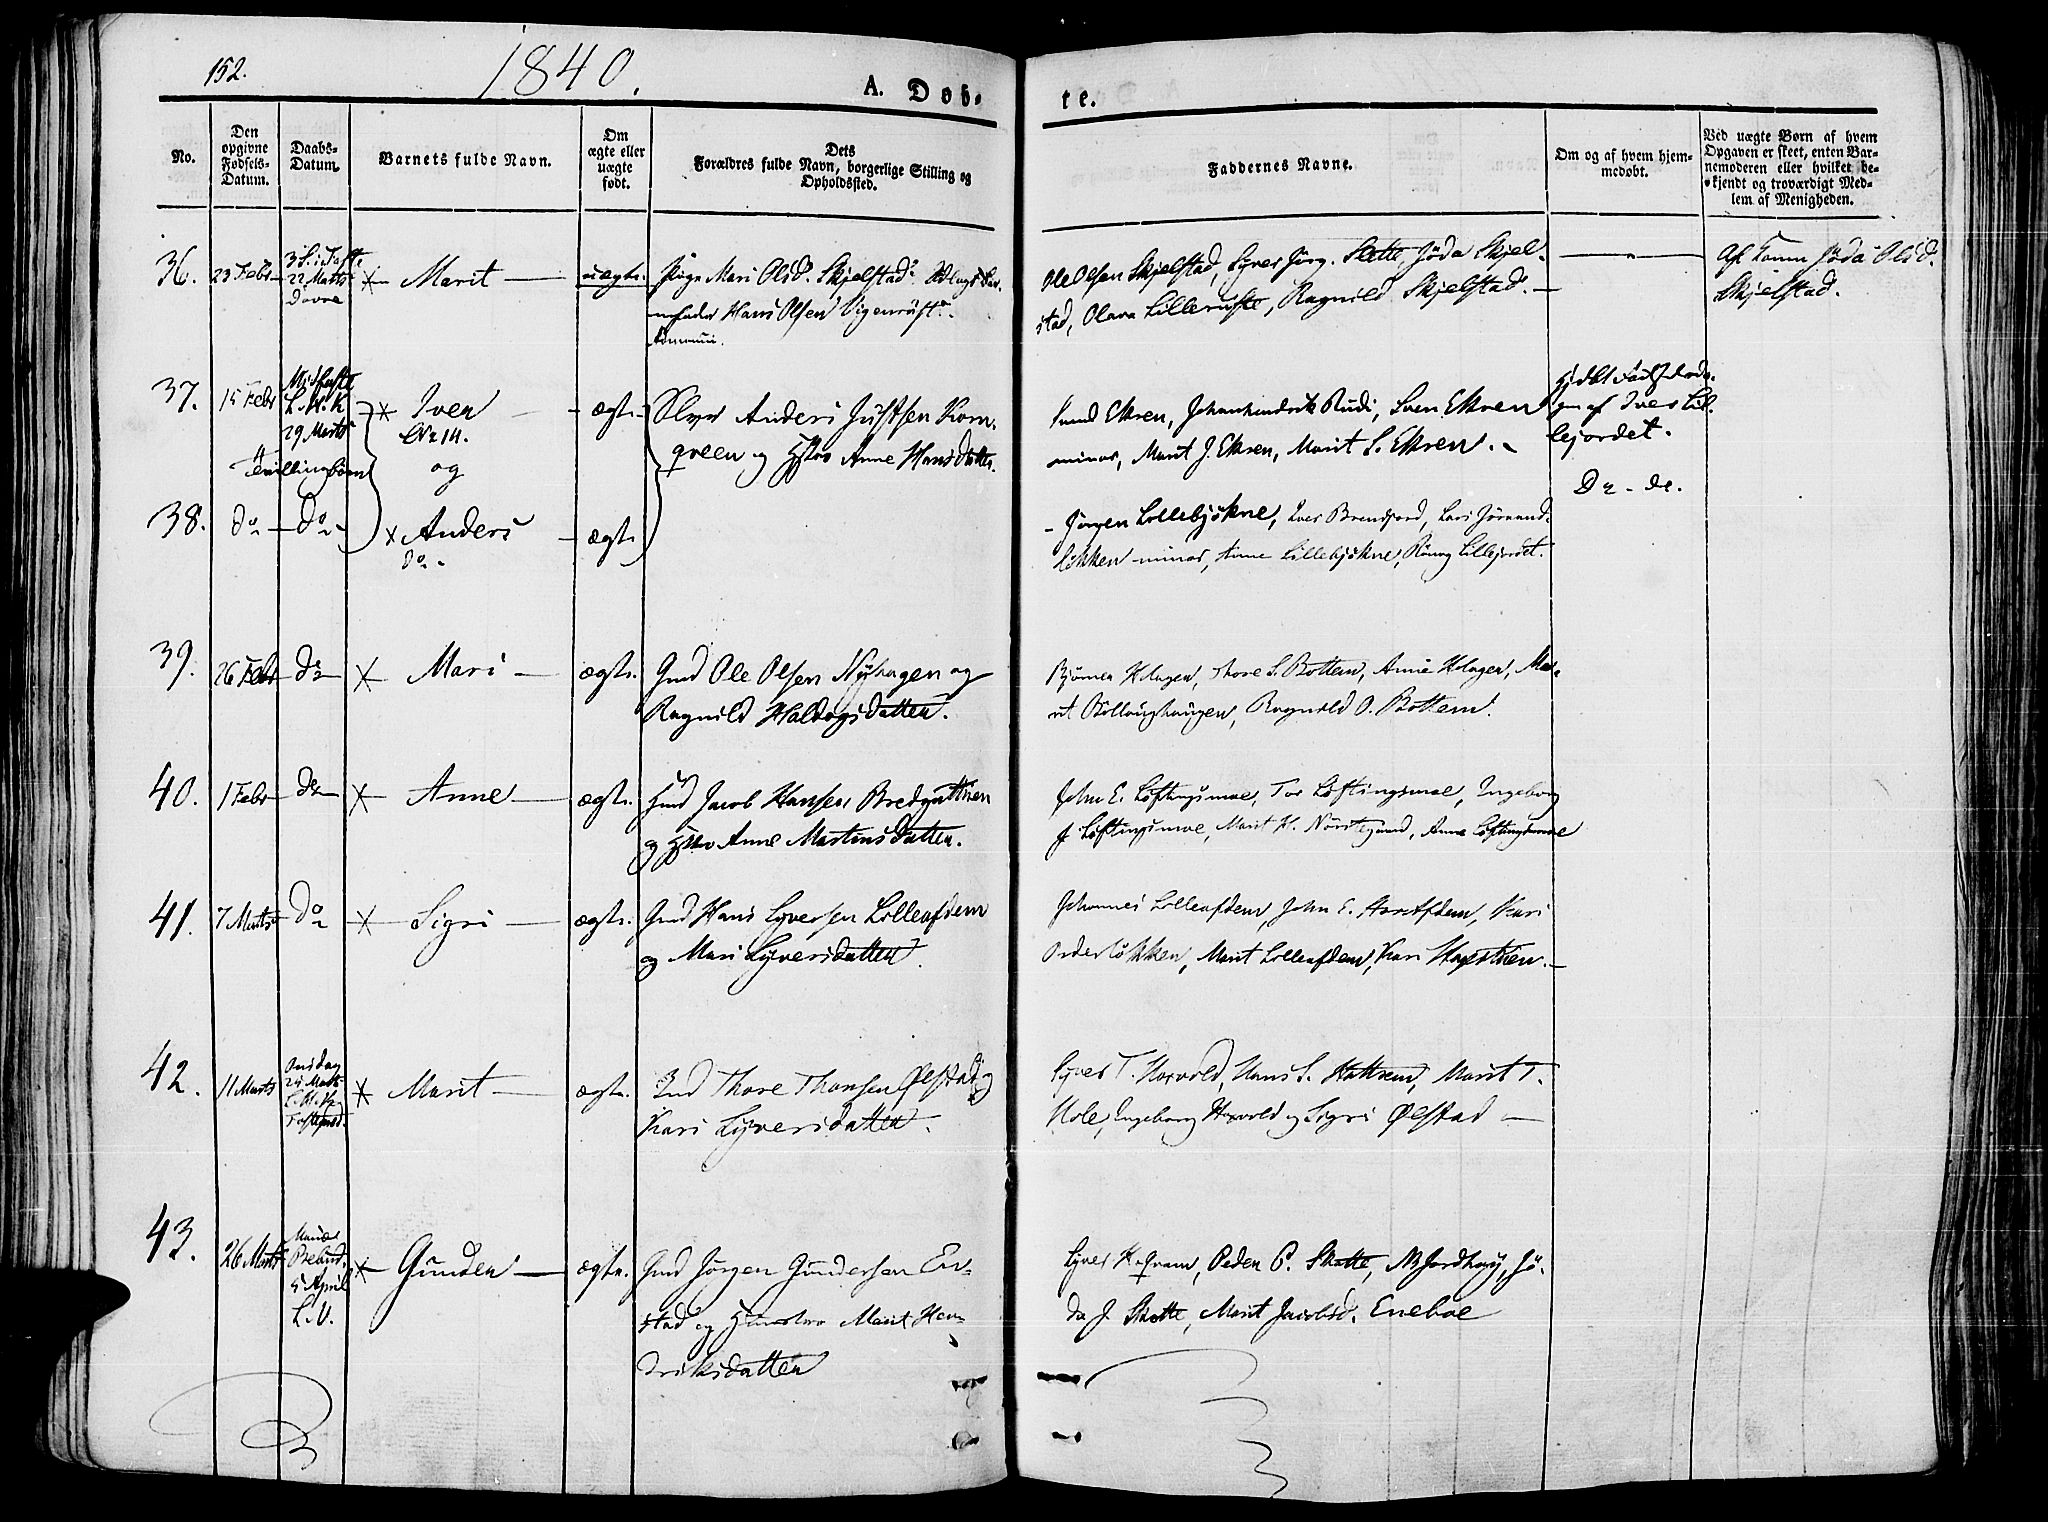 152.
1840.
A. Døb-
te.
No.
Den opgivne Fødsels-Datum.
Daabs-Datum.
Barnets fulde Navn.
Om ægte eller uægte født.
Dets Forældres fulde Navn, borgerlige Stilling og Opholdssted.
Faddernes Navne.
Om og af hvem hjem-medøbt.
Ved uægte Børn af hvem Opgaven er skeet, enten Bar-nemoderen eller hvilket be-kjendt og troværdigt Med-lem af Menigheden.
36. 23 Febr 3 S. i Faste 22 Marts Dovre Marit uægte.
Pige Mari Olsd. Skjelstad.
Hans Olsen
Ole Olsen Skjelstad, Syver Jørg. Slette, Jøda Skjel-
stad, Olava Lilleruste, Ragnild Skjelstad.
Af Jøda Olsd.
Skjelstad.
37. 15 Febr Midfaste L. M. K 29 Marts Iver No 14. ægte
Anders Justsen Kom-
qveen og Hstro Anne Hansdatter.
Ekren, Johanhendrik Rudi, Sven Ekren
minor, Marit J. Ekren, Marit S. Ekren.
af Iver Lil-
lejordet.
Tvillingbørn
og
38. do do Anders do ægte
Do - do.
Jørgen Lillebjøkne, Iver Brendjord, Lars Jørand-
løkken minor, Anne Lillebjøkne, Rønog Lillejordet.
39. 26 Febr do Mari ægte.
Gmd Ole Olsen Nyhagen og
Ragnild Haldogsdatter.
Bjørner Hlagen, Thore S. Bottem, Anne Hlagen, Ma-
rit Ragnild O. Bottem.
40. 1 Febr do Anne ægte.
Hmd Jacob Hansen Bredgutuen
og Hstro Anne Mortensdatter.
John E. Løftingsmoe, Tor Løftingsmoe, Ingeborg
J Løftingsmoe, Marit H. Nörstegaard, Anne Løftingsmoe
41. 7 Marts do Sigri ægte.
Gmd Hans Syversen Lilleafdem
og Mari Syversdatter.
Johannes Lilleafdem, John E. Kari
løkken, Marit Lilleafdem, Kari
42. 11 Marts Onsdag 25 Marts Marit ægte.
Gmd Thore Thorsen Ølstad og
Kari Syversdatter.
Syver T. Horvold, Hans S. Hattrem, Marit T.
Hole, Ingeborg Horvold og Sigri Ølstad
43. 26 Marts 5 April L. M. Gunder ægte.
Gmd Jørgen Gundersen En-
stad og Hunstro Marit Hen-
driksdatter
Syver H. Qvam, Peder P. Slette, M Jordhøy, Jø-
da J Slette, Marit Jacobsd. Eneboe